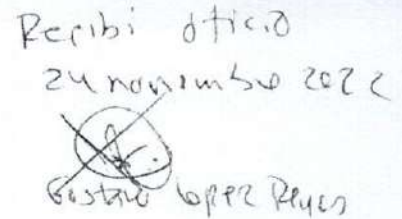 Recibi oficio
24 noviembre 2022
Gustavo Lopez Reyes